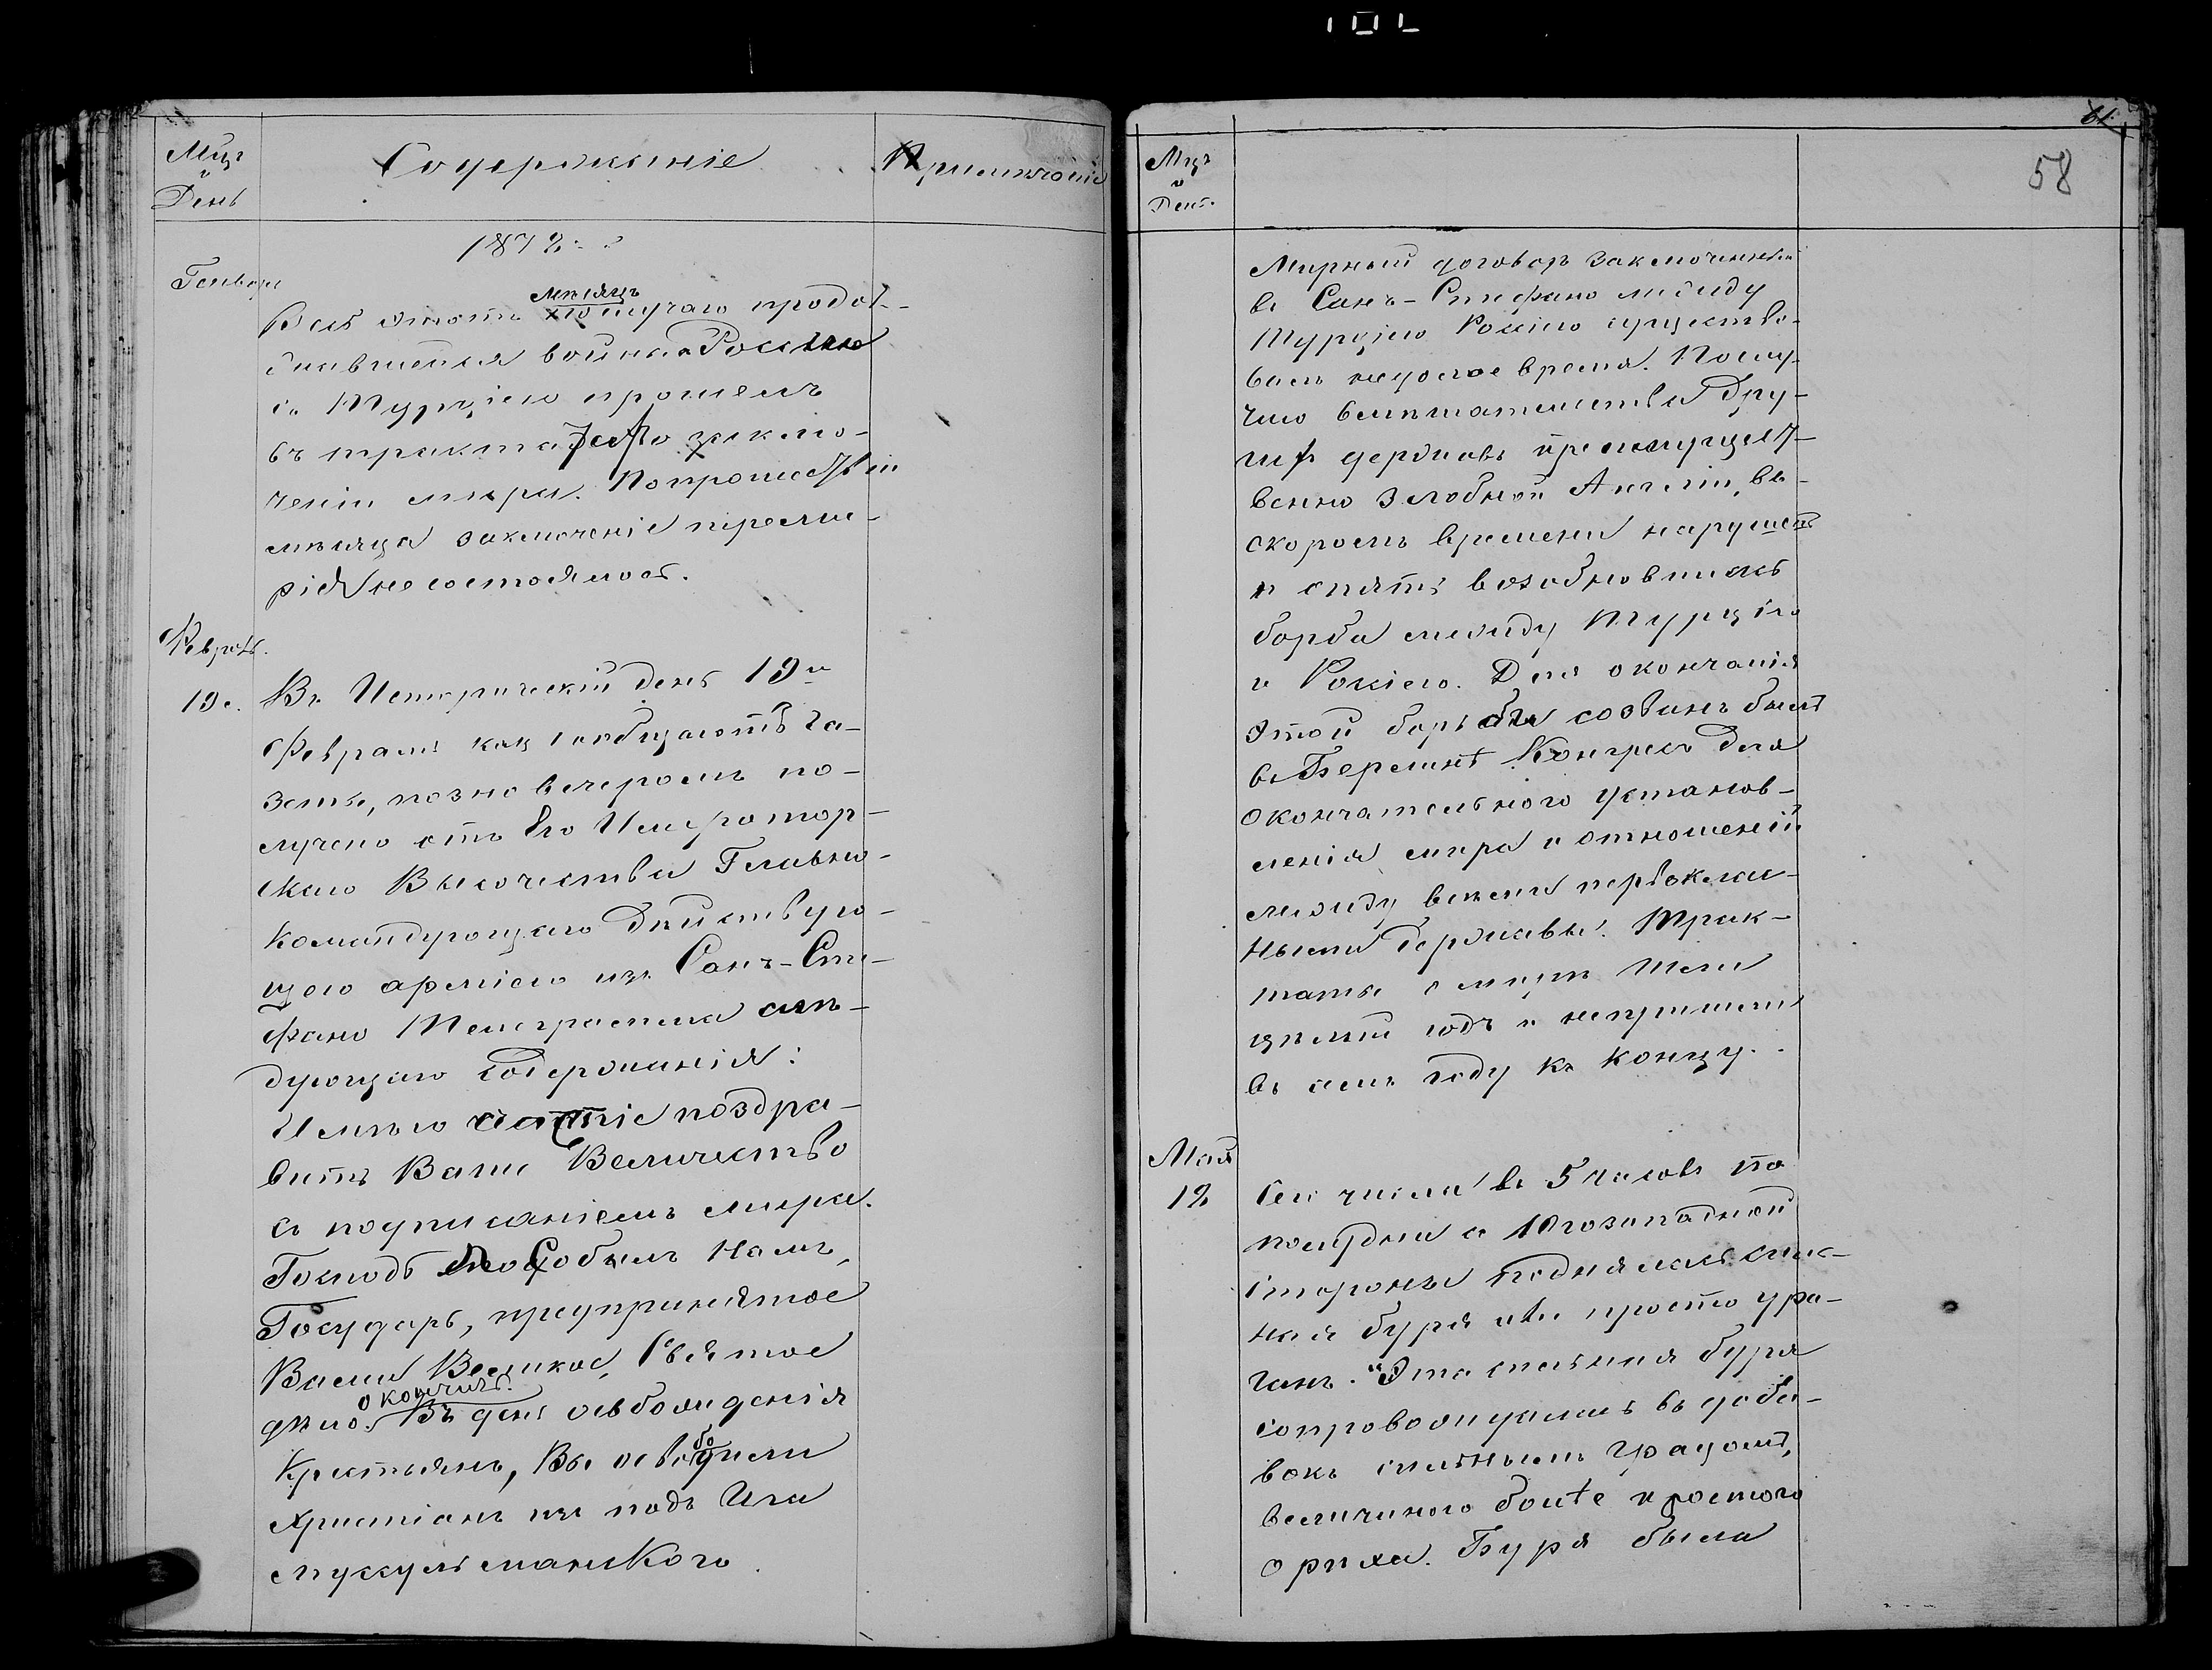 Мцъ
и
День
Содержаніе
Примѣчаніе
1878.
Генварь
мѣсяцъ
Весь этотъ по случаю продол-
жавшейся войны Россіи
съ Турціею прошелъ
въ трактатѣ о заклю-
ченіи мира. По прошествіи
мѣсяца заключеніе переми-
рія не состоялось.
Февраль.
19е.
Въ Историческій день 19го
Февраля какъ сообщаютъ га-
зеты, позно вечеромъ по-
лучено отъ Его Император-
скаго Высочества Главно-
командующаго дѣйствую-
щею арміею изъ Санъ-Сте-
фано Телеграмма слѣ-
дующаго содержанія:
Имѣю счастіе поздра-
вить Ваше Величество
съ подписаніемъ мира.
Господь сподобилъ намъ,
Государь,
предпринятое
Вами Великое, Святое
окончить.
дѣло. Въ день освобожденія
бо
Крестьянъ, Вы освободили
Христіанъ изъ подъ Ига
мусульманскаго.
61
58
Мцъ
и
День.
Мирный договоръ заключенный
въ Санъ-Стефано между
Турціею Россіею существо-
валъ недолгое время. По слу-
чаю вмѣшательства дру-
гихъ державъ преимущест-
венно злобной Англіи, въ
скоромъ времени нарушенъ
и опять возобновилась
борба между Турціею
и Россіею. Для окончанія
этой борьбы созванъ былъ
въ Берлинѣ Конгресъ для
окончательнаго установ-
ленія мира и отношеній
между всѣми первоклас-
ными державы. Трак-
таты о мирѣ шли
цѣлый годъ и не пришли
въ семъ году къ концу.
Май
12
Сего числа въ 5 часовъ по
полудни съ Югозападной
стороны поднялась силь-
ная буря или просто ура-
ганъ. Эта сильная буря
сопровождалась въ доба-
вокъ сильнымъ градомъ,
величиною болѣе простого
орѣха. Буря была